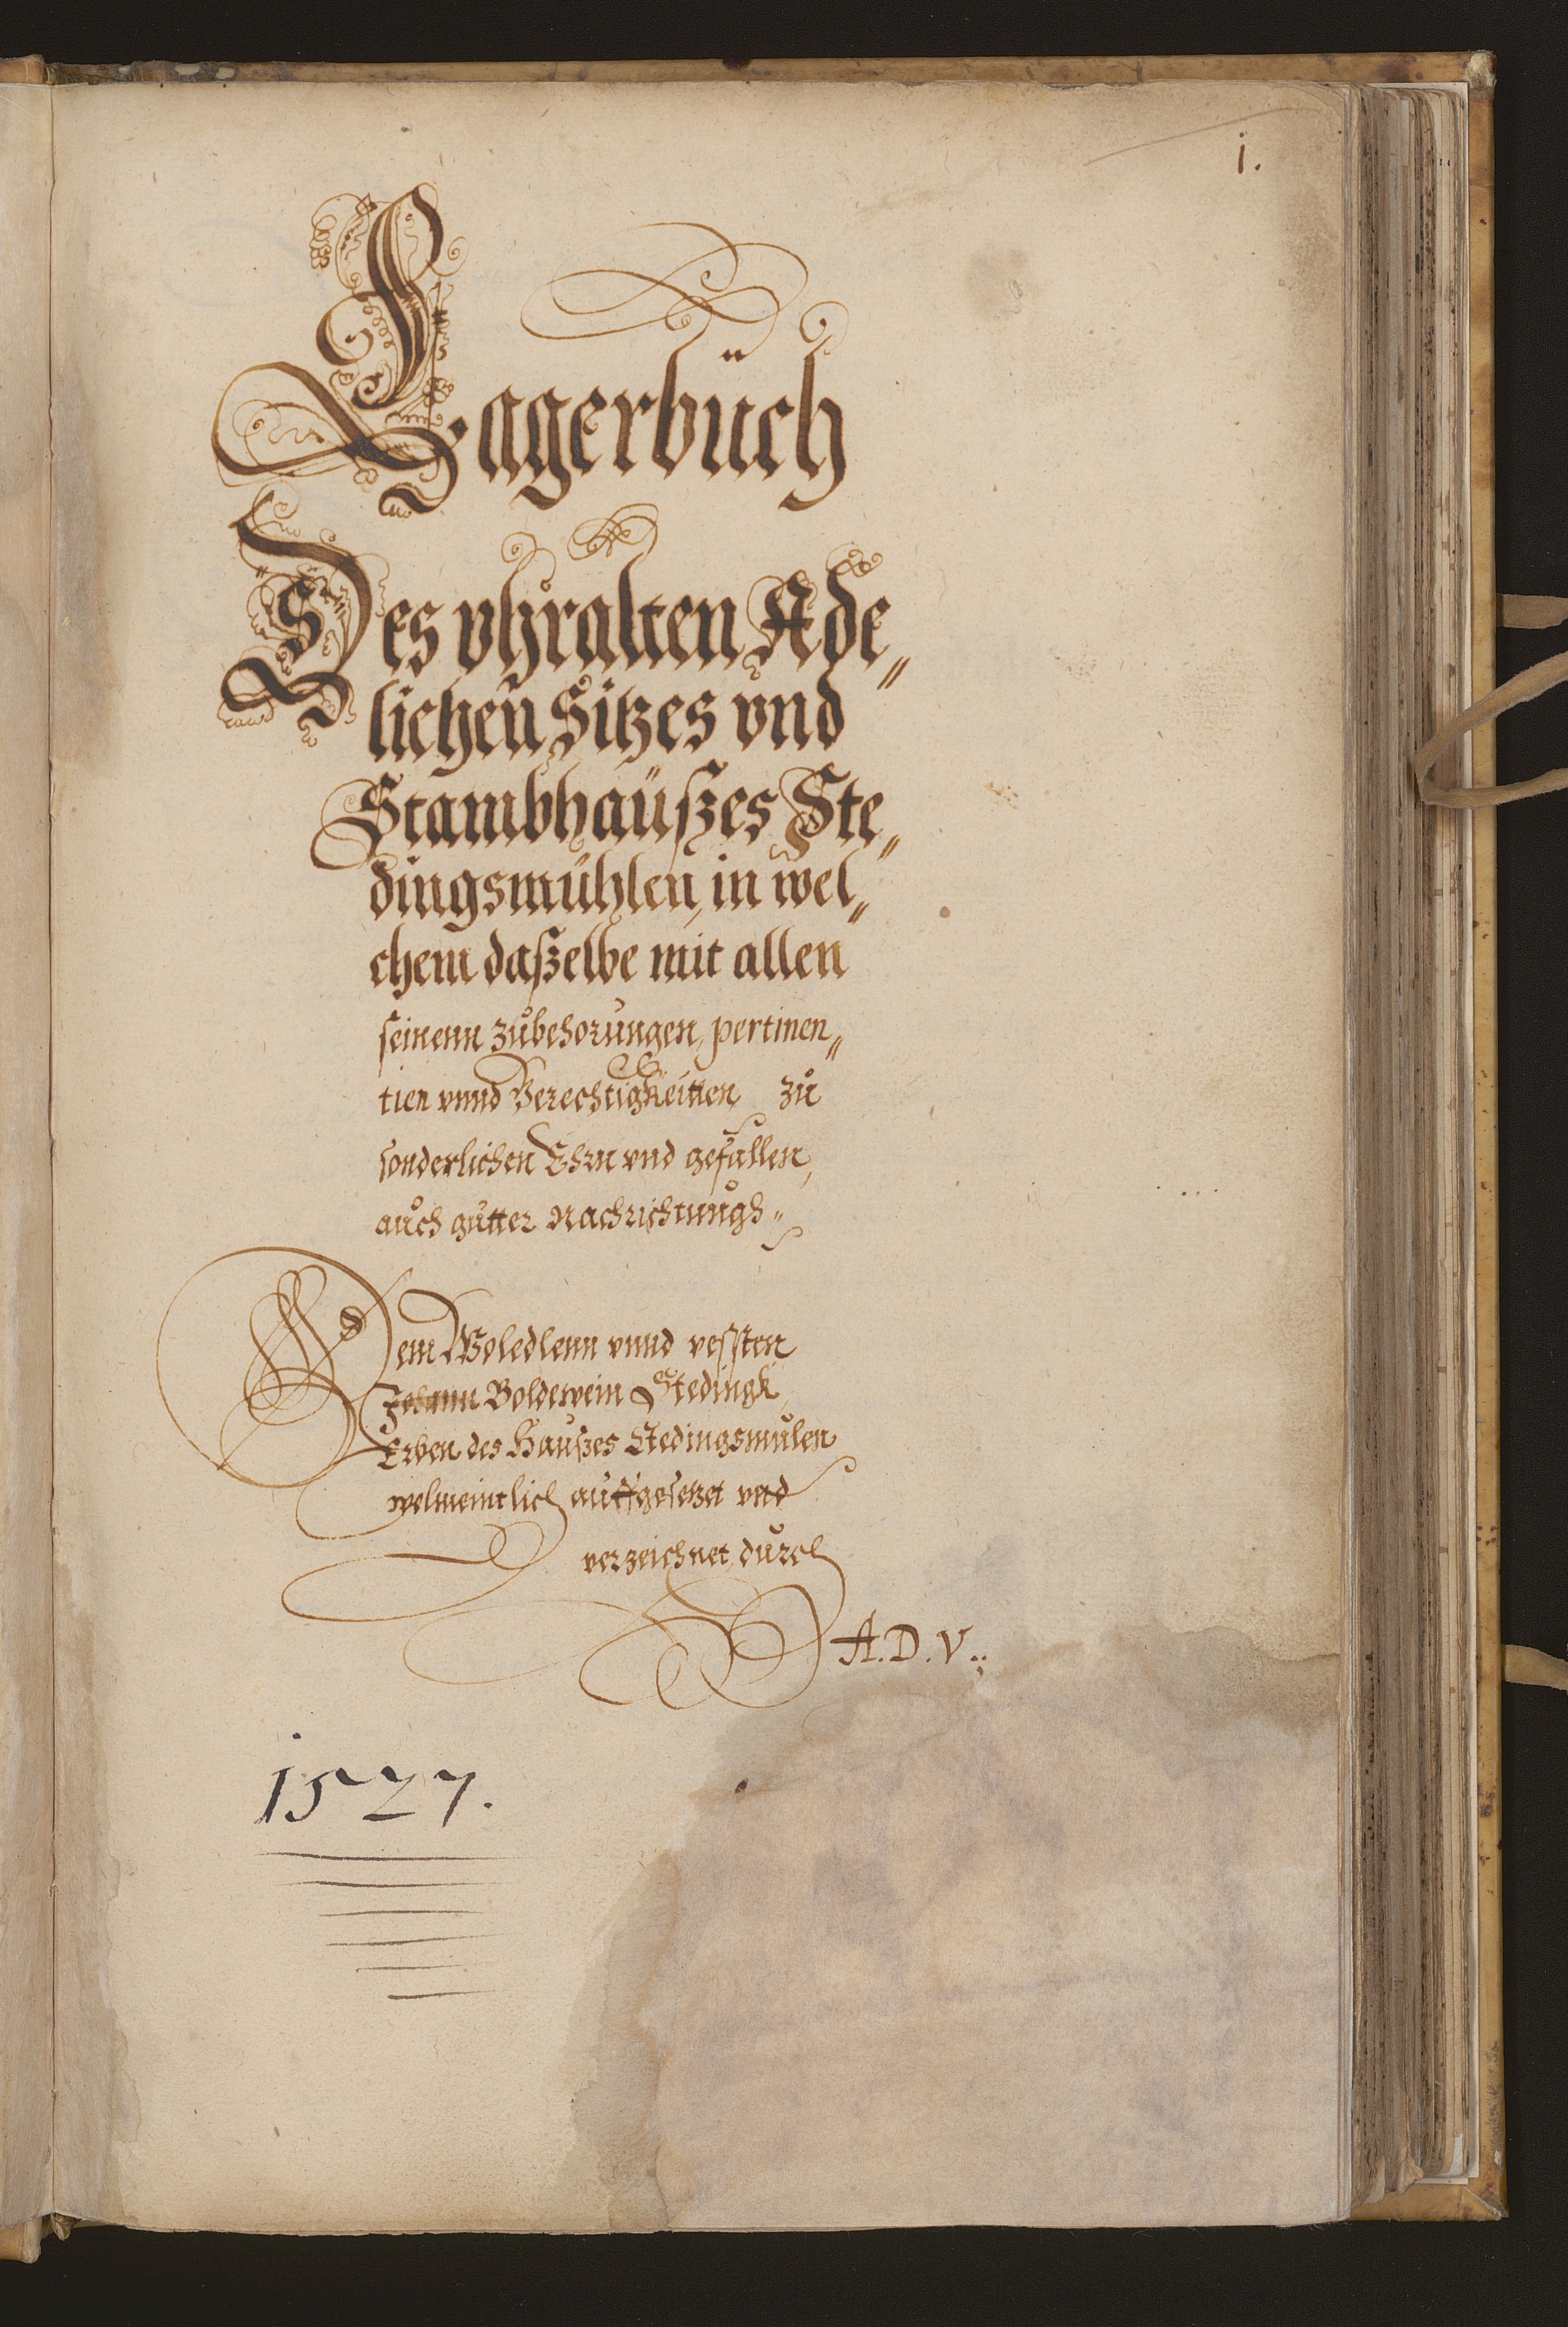 1.
Lagerbuch
Des vhralten Ade„
lichen Sitzes vnd
Stambhaußes Ste„
dingsmühlen, in wel„
chem daßelbe mit allen
seinenn zubehorungen, pertinen„
tien vnnd Gerechtigkeitten zu
sonderlichen Ehrn vnd gefallen,
auch gutter Nachrichtungh„
Dem Woledlenn vnnd vessten
Johann Boldewein Stedingk,
Erben des Haußes Stedingsmulen
wolmeintlich auffgesetzet vnd
verzeichnet durch
A. D. V.
1527.